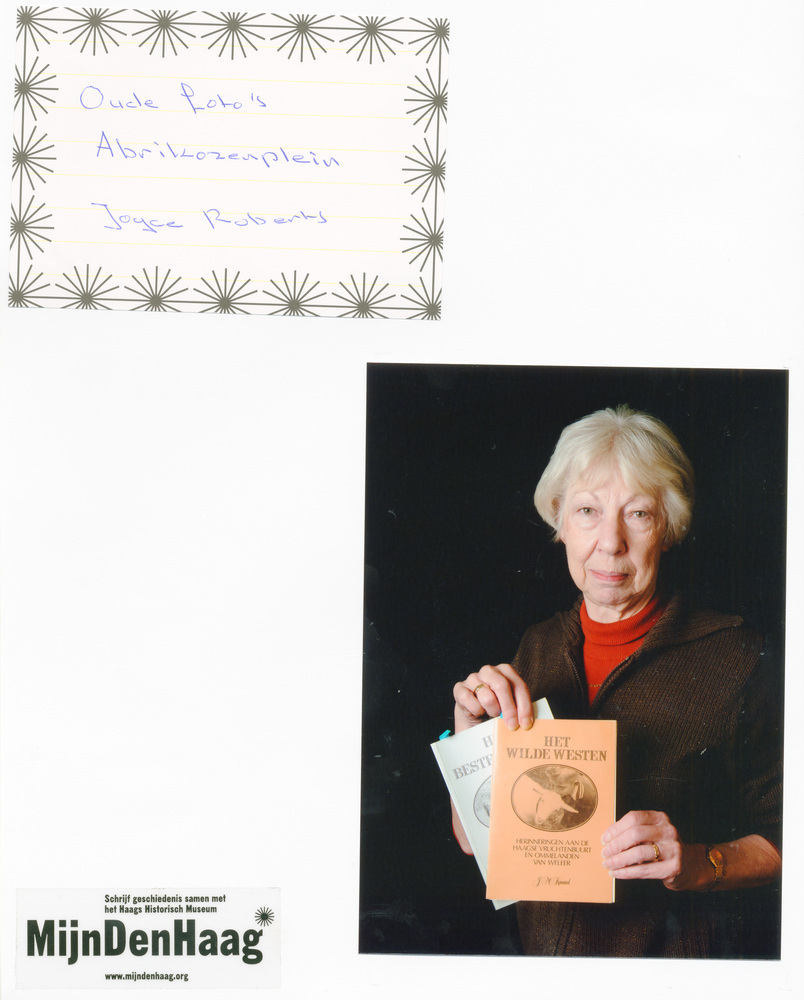 Oude foto's
Abrikozenplein
Joyce Roberts
H
BESTE
HET
WILDE WESTEN
HERINNERINGEN AAN DE
HAAGSE VRUCHTENBUURT
EN OMMELANDEN
VAN WELEER
Schrijf geschiedenis samen met
het Haags Historisch Museum
MijnDenHaag
www.mijndenhaag.org